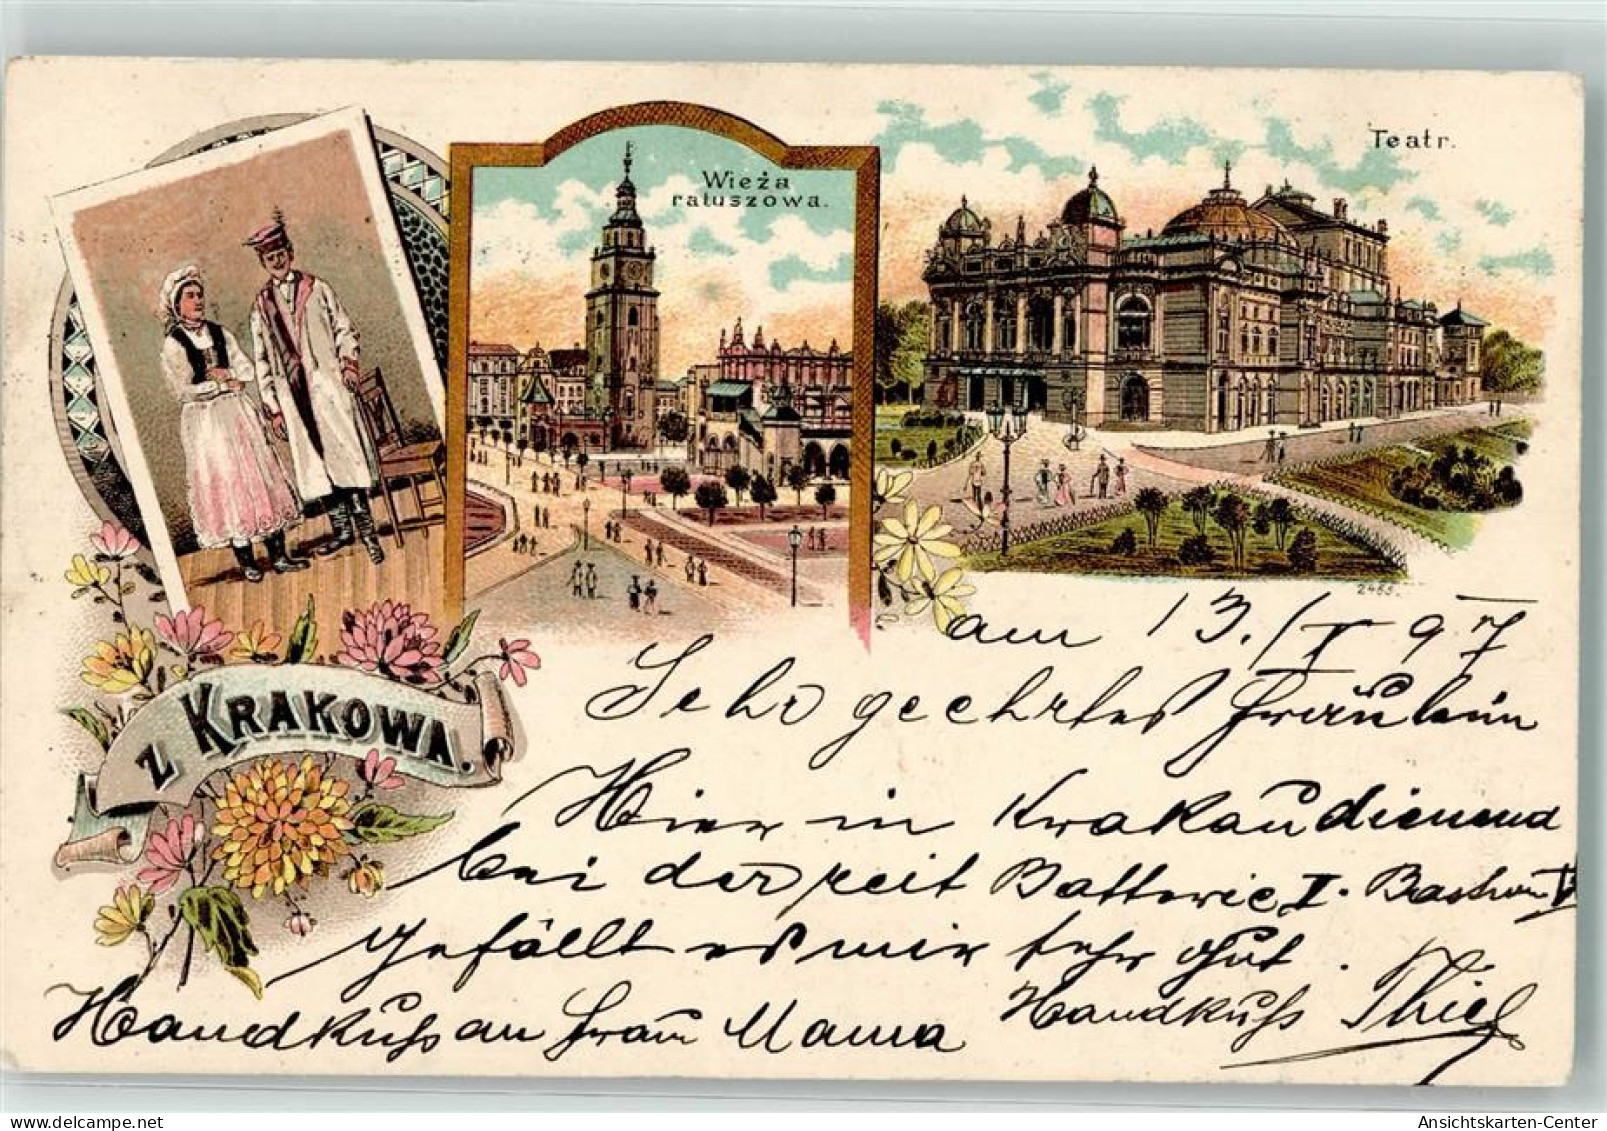 Teatr.
Wieża
ratuszowa.
Z KRAKOWA.
2465.
am 13./IX 97
Sehr geehrtes Fräulein
Hier in Krakau dienend
bei der zeit Batterie II. Bastion V
gefällt es mir sehr gut.
Handkuß an Frau Mama Handkuß Thiel
Ansichtskarten-Center